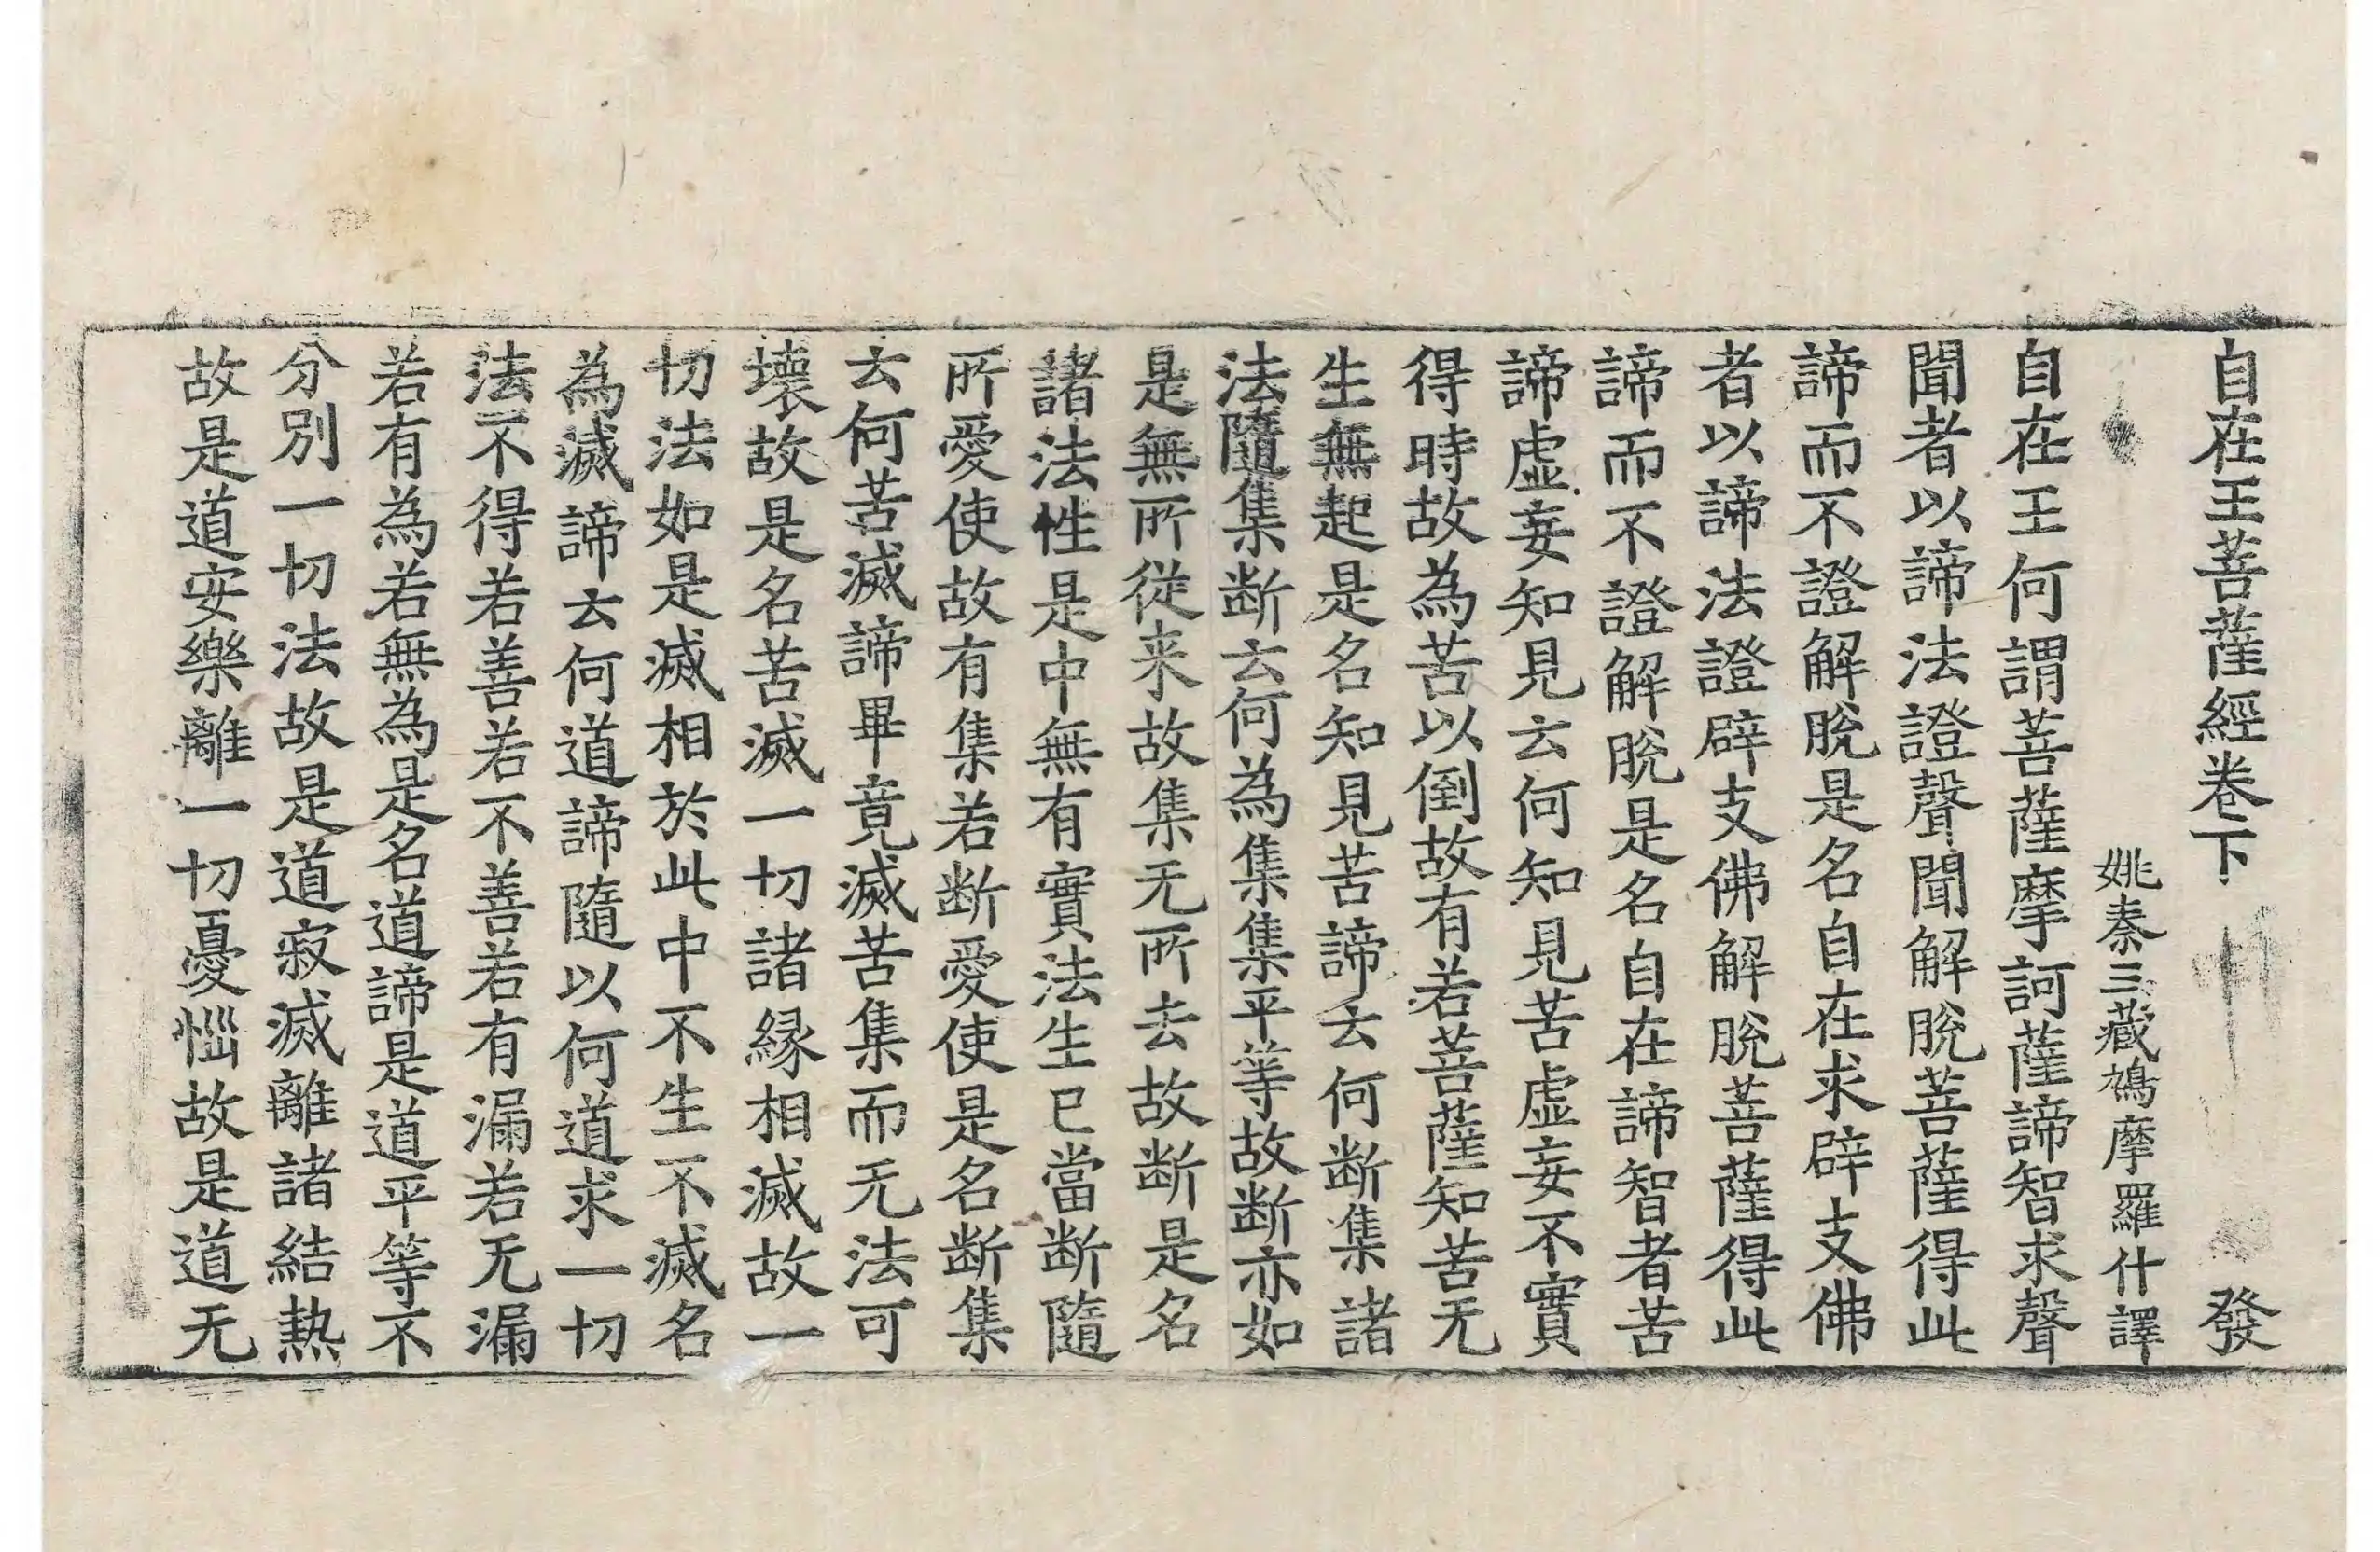 自在王菩薩經卷下 發
姚秦三藏鳩摩羅什譯
自在王何謂菩薩摩訶薩諦智求聲
聞者以諦法證聲聞解脫菩薩得此
諦而不證解脫是名自在求辟支佛
者以諦法證辟支佛解脫菩薩得此
諦而不證解脫是名自在諦智者苦
諦虛妄知見云何知見苦虛妄不實
得時故為苦以倒故有若菩薩知苦无
生無起是名知見苦諦云何断集諸
法隨集断云何為集集平等故断亦如
是無所從来故集无所去故断是名
諸法性是中無有實法生已當断隨
所愛使故有集若断愛使是名断集
云何苦滅諦畢竟滅苦集而无法可
壞故是名苦滅一切諸緣相滅故一
切法如是滅相於此中不生不滅名
為滅諦云何道諦隨以何道求一切
法不得若善若不善若有漏若无漏
若有為若無為是名道諦是道平等不
分別一切法故是道寂滅離諸結熱
故是道安樂離一切憂惱故是道无